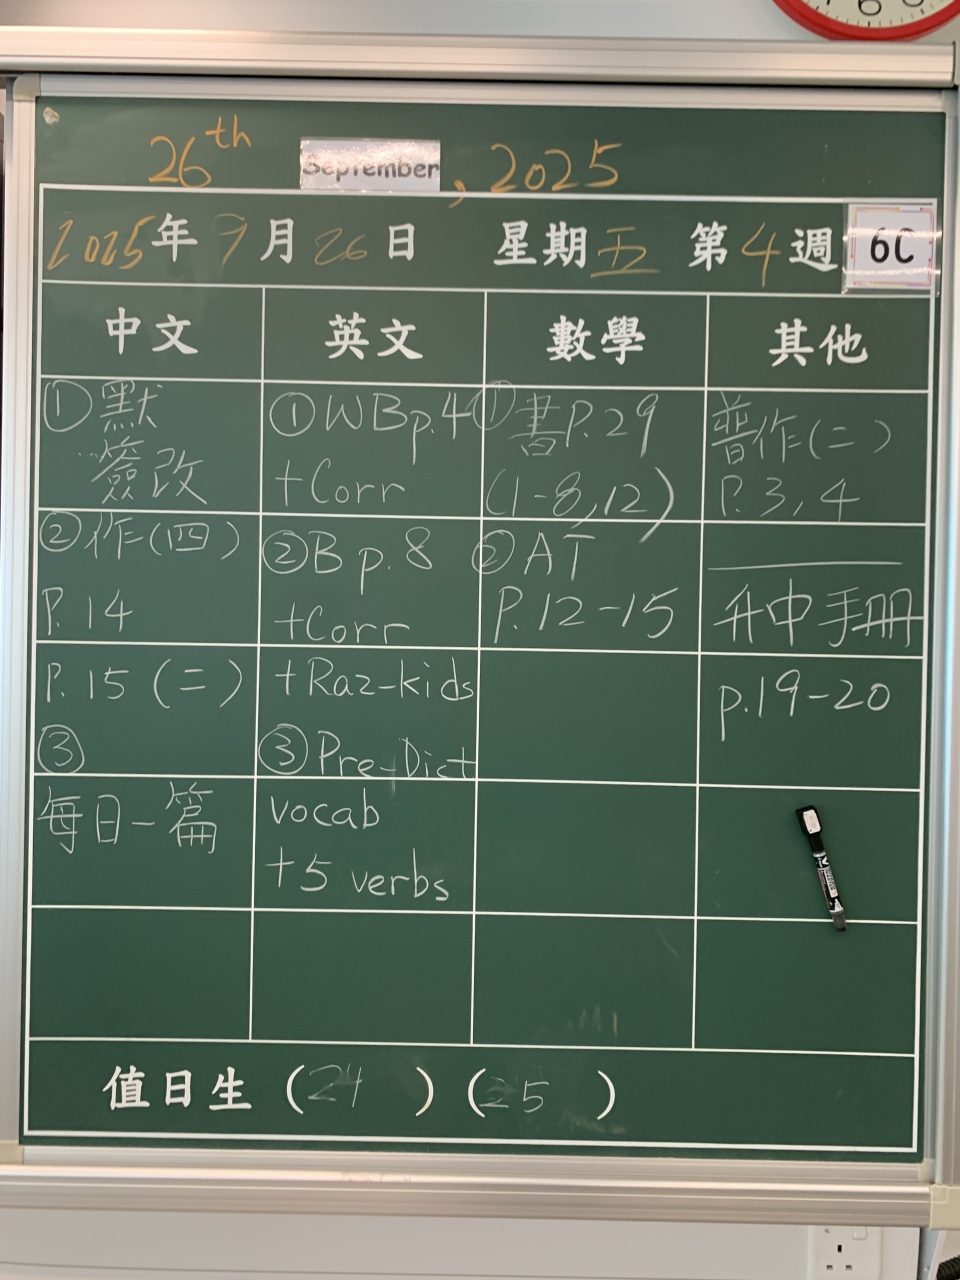 26th September, 2025
2025年9月26日 星期五 第4週 6C
中文 英文 數學 其他
①默
簽改
②作(四)
P.14
P.15(二)
③
每日一篇
①WBp.4
+Corr
②Bp.8
+Corr
+Raz-kids
③Pre-Dict
vocab
+5 verbs
①書P.29
(1-8,12)
②AT
P.12-15
普作(二)
P.3,4
升中手冊
p.19-20
值日生(24)(25)